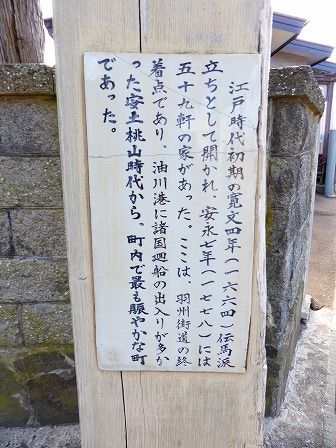 江戸時代初期の寛文四年(一六六四)伝馬派
立ちとして開かれ、安永七年(一七七八)には
五十九軒の家があった。ここは、羽州街道の終
着点であり、油川港に諸国廻船の出入りが多か
った安土桃山時代から、町内で最も賑やかな町
であった。